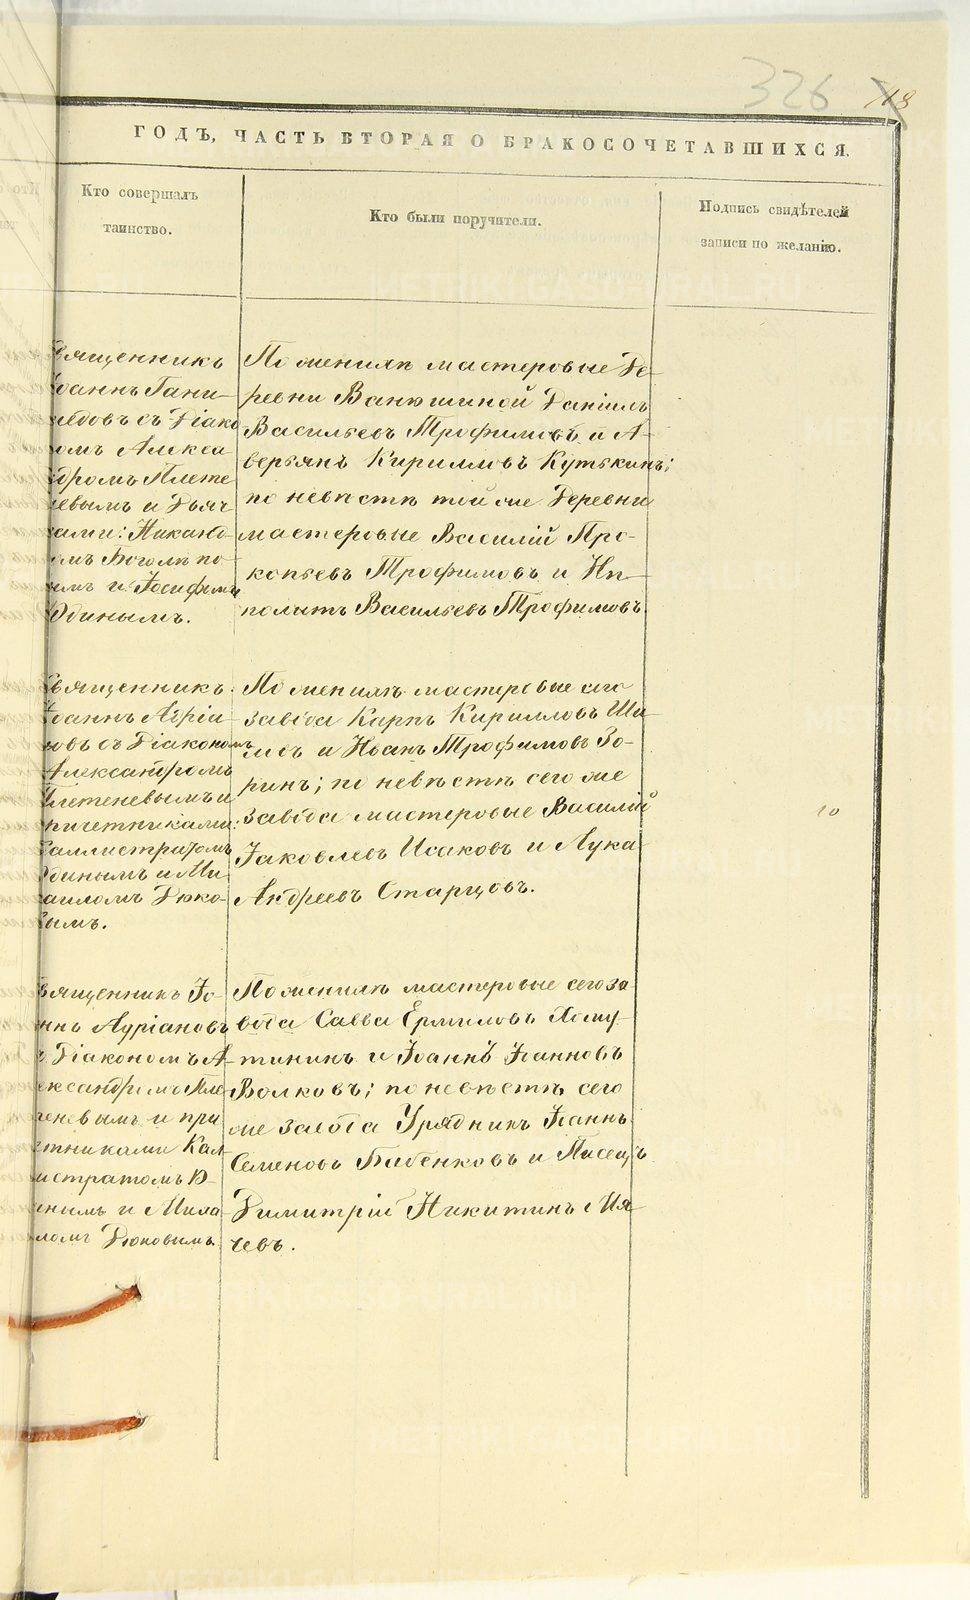 326 118
ГОДЪ, ЧАСТЬ ВТОРАЯ О БРАКОСОЧЕТАВШИХСЯ.
Кто совершалъ
таинство.
Кто были поручители.
Подпись свидѣтелей
записи по желанію.
METRIKI.GASO-URAL.RU
вященникъ
оаннъ Гани-
съ Діако
омъ Алекса
дромъ Плете
евымъ и Дьяч
ками: Никанд-
омъ Боголѣпо-
ымъ и Іосифомъ
Юдинымъ.
По женихѣ мастеровые Де-
ревни Ванюшиной Даніилъ
Васильевъ Трофимовъ и А-
верьянъ Кирилловъ Кутькинъ;
по невѣстѣ той же Деревни
мастеровые Василій Про-
копьевъ Трофимовъ и Ип-
политъ Васильевъ Трофимовъ.
Священникъ
Іоаннъ Адріа-
новъ съ Діакономъ
Александромъ
Плетеневымъ и
причетниками:
Каллистратомъ
Юдинымъ и Ми-
хаиломъ Дюко-
вымъ.
По женихѣ мастеровые сего
завода Карпъ Кирилловъ
и Иоанъ Трофимовъ Зо-
ринъ; по невѣстѣ сего же
завода мастеровые Василій
Іаковлевъ Исаковъ и Лука
Андреевъ Старцовъ.
10
вященникъ Іо-
аннъ Адріановъ
съ Діакономъ А-
лександромъ Пле-
теневымъ и при
четниками Кал-
листратомъ Ю-
динымъ и Миха-
иломъ Дюковымъ.
По женихѣ мастеровые сего за-
вода Савва Ермиловъ Хому-
тининъ и Іоаннъ Іоанновъ
Волковъ; по невѣстѣ сего
же завода Урядникъ Іоаннъ
Семеновъ Бабенковъ и Писецъ
Димитрій Никитинъ Мя-
чевъ.